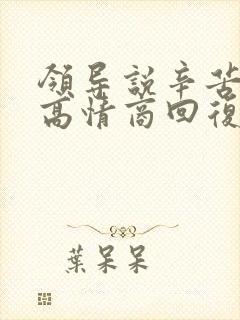 領导説辛苦
高情商回復
葉呆呆